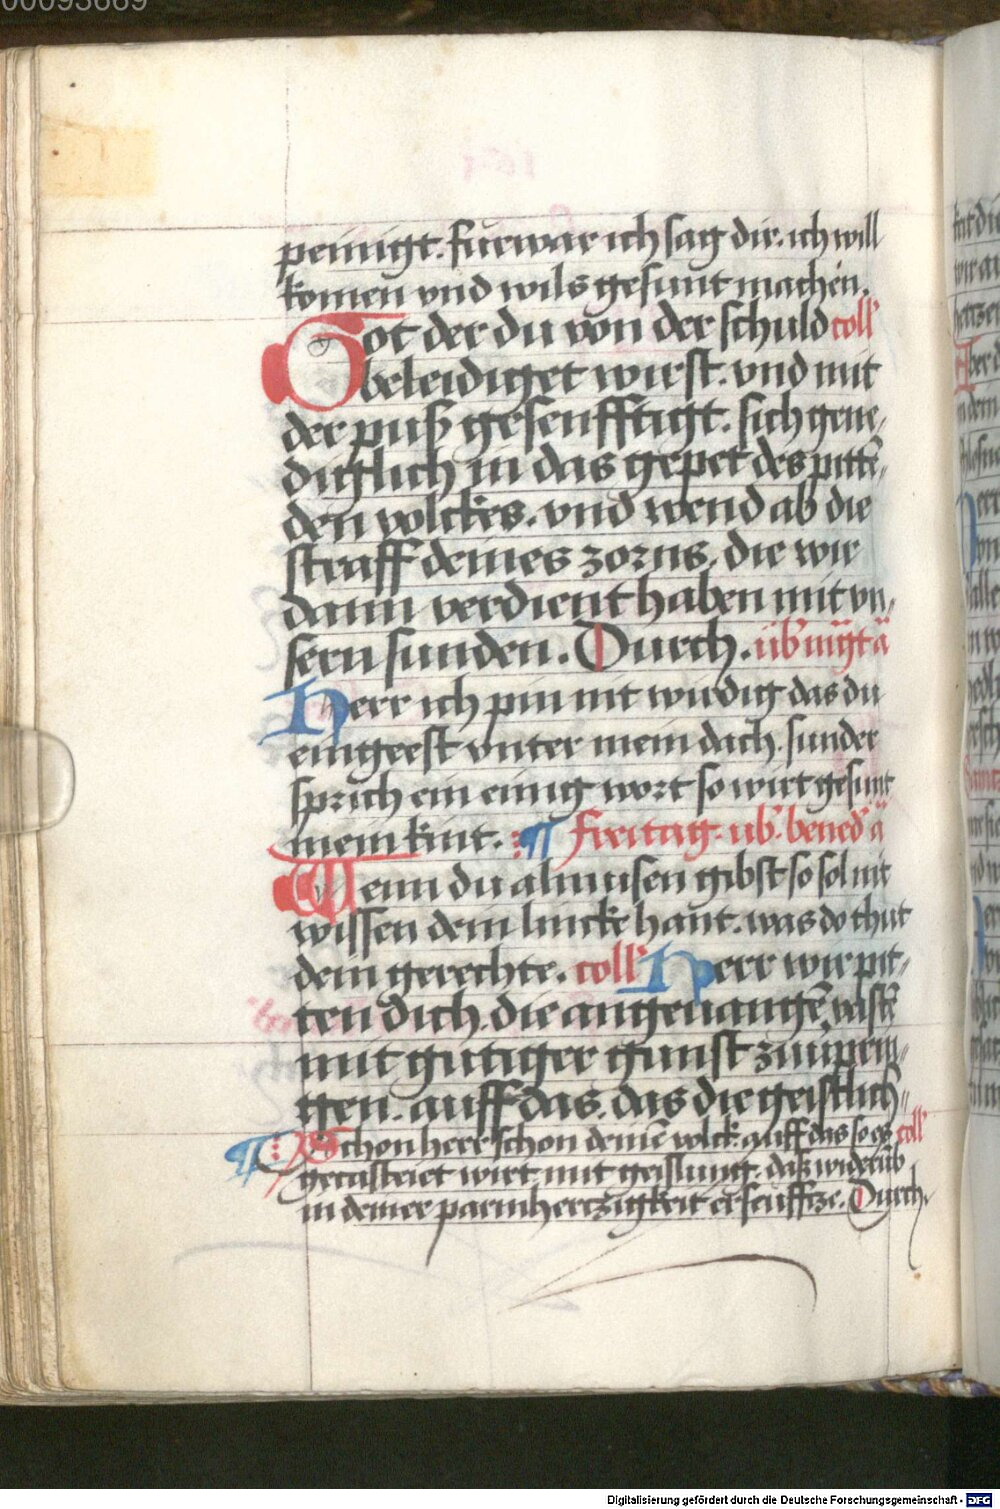 00093669
peinigt. furwar ich sag dir. ich will
komen vnd wils gesunt machen.
Got der du von der schuld coll'
beleidiget wirst. vnd mit
der puß gesenfftigt. sich gene,
diglich in das gepet des pittē,
den volckes. vnd wend ab die
straff deines zorns, die wir
dann verdient haben mit vn,
sern sunden. Durch. üb' mgt ā
Herr ich pin nit wirdig das du
eingeest vnter mein dach. sunder
sprich ein einig wort so wirt gesunt
mein kint. ¶ Freitag. ub' bened' ā
Wenn du almusen gibst so sol nit
wissen dein lincke hant. was do thut
dein gerechte. coll' Herr wir pit,
ten dich. die angeuangē vastē
mit gutiger gunst zuuprin,
gen. auff das. das die geistlich,
¶ Schon herr schon deinē volck. auff das so es coll'
gecasteiet wirt mit geislung. daß widerüb
in deiner parmhertzigkeit erseufftze. Durch.
Digitalisierung gefördert durch die Deutsche Forschungsgemeinschaft - DFG